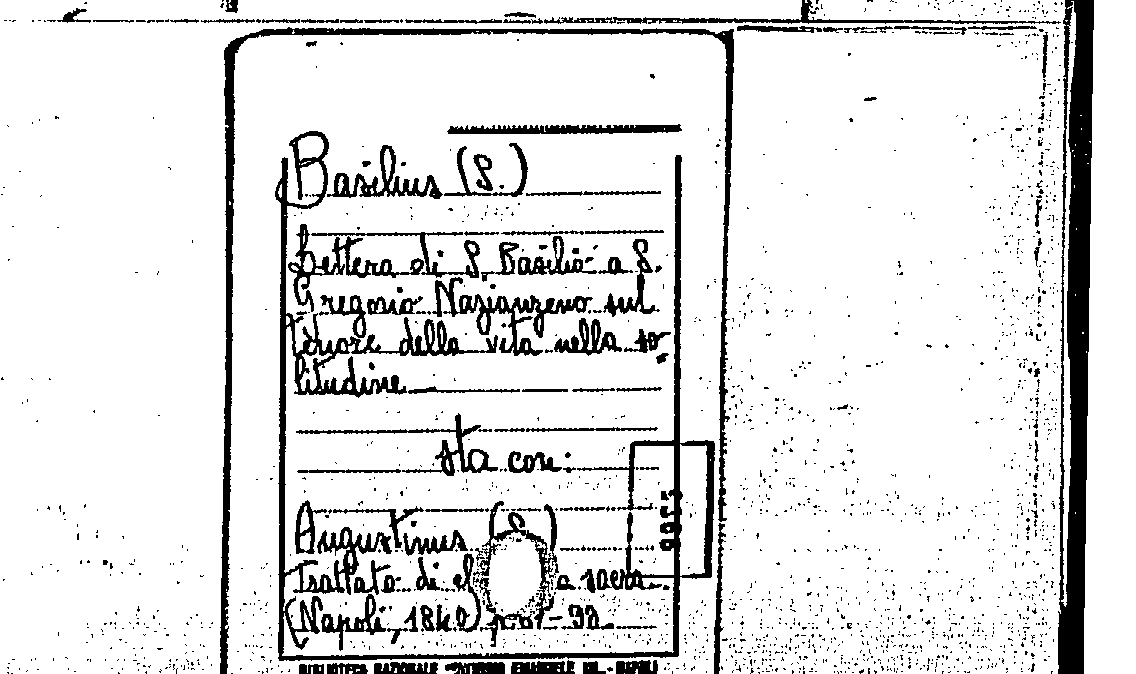 Basilius (S.)
Lettera di S. Basilio a S.
Gregorio Nazianzeno sul
tenore della vita nella so-
litudine
sta con:
Augustinus (S.)
Trattato di el a sacra.
(Napoli, 1840)
BIBLIOTECA NAZIONALE VITTORIO EMANUELE III. - NAPOLI